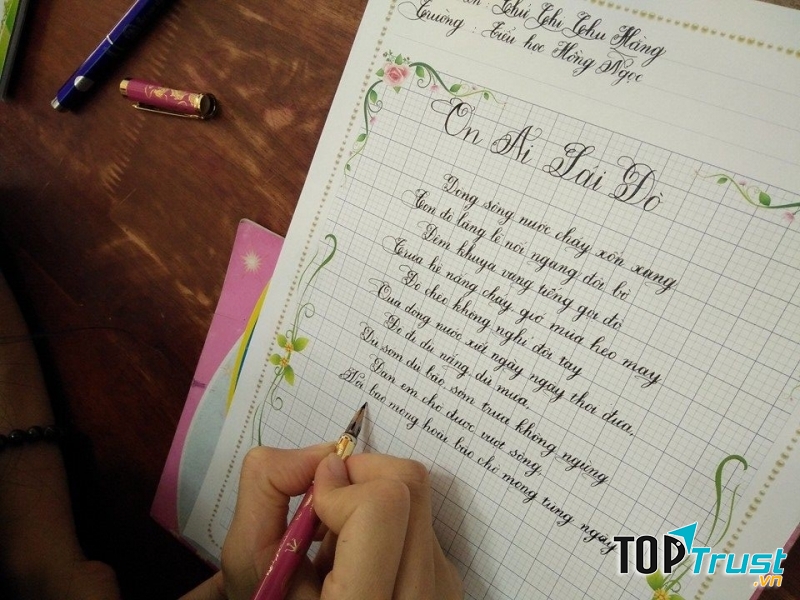 Chi Thu Hằng
Trường : Tiểu học Hồng Ngọc
Ơn Ai Lái Đò
Dòng sông nước chảy xốn xang
Con đò lặng lẽ nối ngang đôi bờ
Đêm khuya vang tiếng gọi đò
Trưa hè nắng cháy gió mùa heo may
Đò chèo không nghỉ đôi tay
Qua dòng nước xiết ngày ngày thoi đưa.
Đò đi dù nắng dù mưa,
Dù sớm dù bão, sớm trưa không ngừng
Đàn em chờ được vượt sông,
Với bao mộng hoài bão chờ mong từng ngày
TOP Trust
.vn